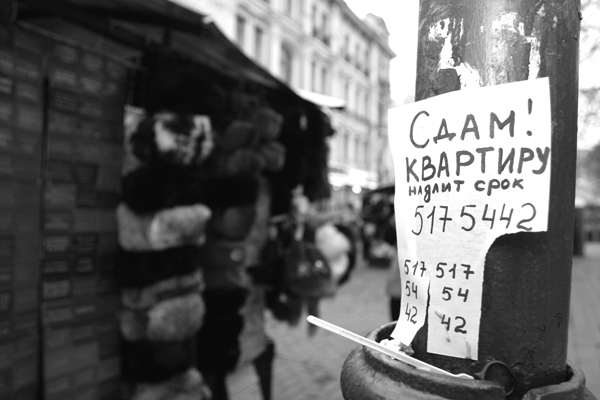 СДАМ!
КВАРТИРУ
НА ДЛИТ СРОК
517 5442
517 517
54 54
42 42